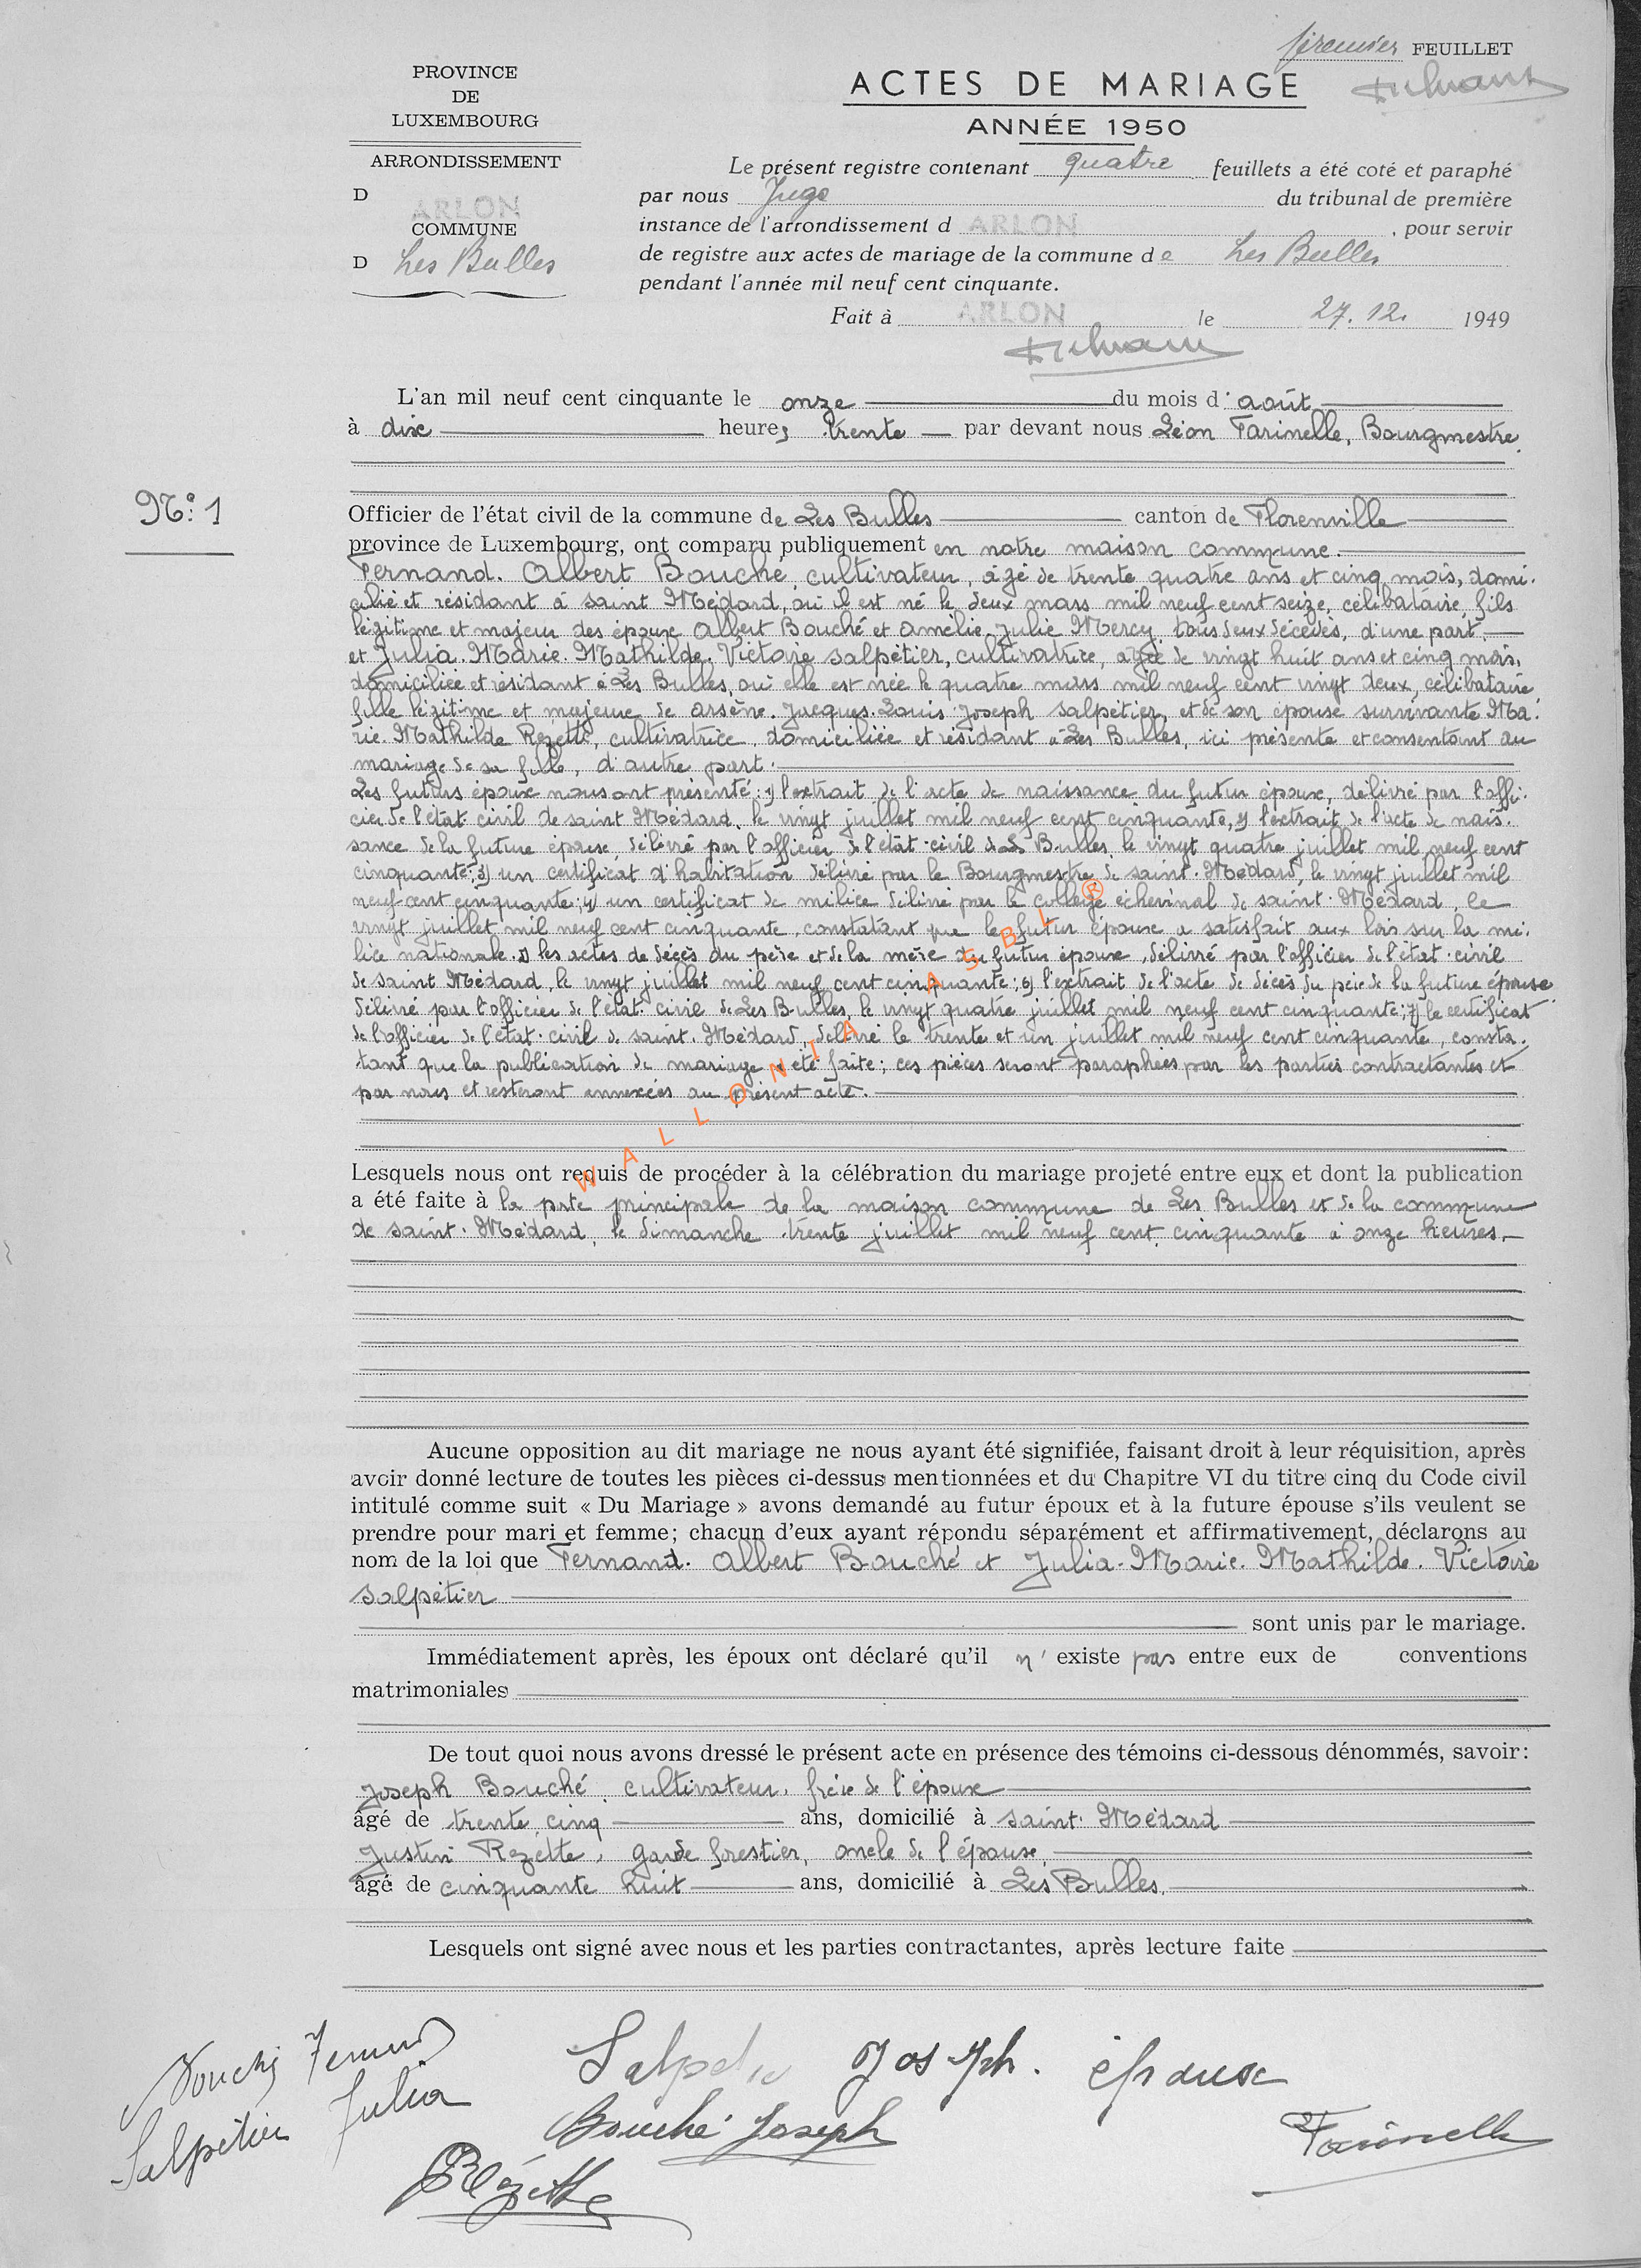 premier FEUILLET
PROVINCE
DE
LUXEMBOURG
ACTES DE MARIAGE
ANNÉE 1950
ARRONDISSEMENT
D ARLON
COMMUNE
D Les Bulles
Le présent registre contenant quatre feuillets a été coté et paraphé
par nous Juge du tribunal de première
instance de l'arrondissement d ARLON , pour servir
de registre aux actes de mariage de la commune de Les Bulles
pendant l'année mil neuf cent cinquante.
Fait à ARLON le 27.12. 1949
L'an mil neuf cent cinquante le onze du mois d'août
à dix heures trente par devant nous Léon Farinelle, Bourgmestre.
N° 1
Officier de l'état civil de la commune de Les Bulles canton de Florenville
province de Luxembourg, ont comparu publiquement en notre maison commune.
Fernand. Albert Bouché, cultivateur, âgé de trente quatre ans et cinq mois, domi.
cilié et résidant à Saint Médard, où il est né le deux mars mil neuf cent seize, célibataire, fils
légitime et majeur des époux Albert Bouché et Amélie Julie Mercy, tous deux décédés, d'une part.
et Julia. Marie. Mathilde. Victoire Salpétier, cultivatrice, âgée de vingt huit ans et cinq mois,
domiciliée et résidant à Les Bulles, où elle est née le quatre mars mil neuf cent vingt deux, célibataire,
fille légitime et majeure de Arsène. Jacques. Louis. Joseph Salpétier, et de son épouse survivante Ma.
rie. Mathilde Rezette, cultivatrice, domiciliée et résidant à Les Bulles, ici présente et consentant au
mariage de sa fille, d'autre part.
Les futurs époux nous ont présenté: 1) l'extrait de l'acte de naissance du futur époux, délivré par l'offi.
cier de l'état civil de Saint Médard, le vingt juillet mil neuf cent cinquante, 2) l'extrait de l'acte de nais.
sance de la future épouse, délivré par l'officier de l'état civil de Les Bulles, le vingt quatre juillet mil neuf cent
cinquante; 3) un certificat d'habitation délivré par le Bourgmestre de Saint. Médard, le vingt juillet mil
neuf cent cinquante; 4) un certificat de milice délivré par le collège échevinal de Saint. Médard, le
vingt juillet mil neuf cent cinquante, constatant que le futur époux a satisfait aux lois sur la mi.
lice nationale. 5) les actes de décès du père et de la mère du futur époux, délivré par l'officier de l'état civil
de Saint Médard, le vingt juillet mil neuf cent cinquante; 6) l'extrait de l'acte de décès du père de la future épouse
délivré par l'officier de l'état civil de Les Bulles, le vingt quatre juillet mil neuf cent cinquante; 7) le certificat
de l'officier de l'état civil de Saint. Médard, délivré le trente et un juillet mil neuf cent cinquante, consta.
tant que la publication de mariage a été faite; ces pièces seront paraphées par les parties contractantes et
par nous et resteront annexées au présent acte.
WALLONIA ASBL ®
Lesquels nous ont requis de procéder à la célébration du mariage projeté entre eux et dont la publication
a été faite à la porte principale de la maison commune de Les Bulles et de la commune
de Saint. Médard, le dimanche trente juillet mil neuf cent cinquante à onze heures.
Aucune opposition au dit mariage ne nous ayant été signifiée, faisant droit à leur réquisition, après
avoir donné lecture de toutes les pièces ci-dessus mentionnées et du Chapitre VI du titre cinq du Code civil
intitulé comme suit « Du Mariage » avons demandé au futur époux et à la future épouse s'ils veulent se
prendre pour mari et femme; chacun d'eux ayant répondu séparément et affirmativement, déclarons au
nom de la loi que Fernand. Albert Bouché et Julia. Marie. Mathilde. Victoire
Salpétier
sont unis par le mariage.
Immédiatement après, les époux ont déclaré qu'il n'existe pas entre eux de conventions
matrimoniales
De tout quoi nous avons dressé le présent acte en présence des témoins ci-dessous dénommés, savoir:
Joseph Bouché, cultivateur, frère de l'époux
âgé de trente cinq ans, domicilié à Saint. Médard
Justin Rezette, garde forestier, oncle de l'épouse,
âgé de cinquante huit ans, domicilié à Les Bulles.
Lesquels ont signé avec nous et les parties contractantes, après lecture faite
Bouché Fernand
Salpétier Julia
Joseph. épouse
Bouché Joseph
Rézette
Farinelle